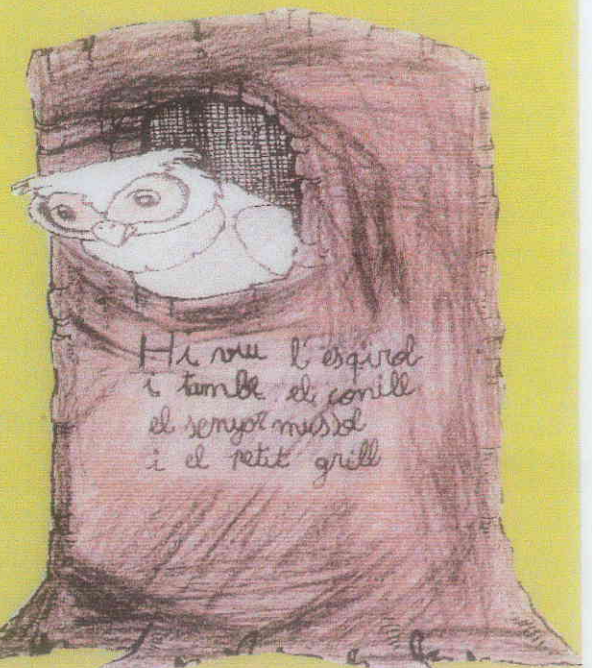 Hi viu l'esquirol
i també el conill
el senyor mussol
i el petit grill